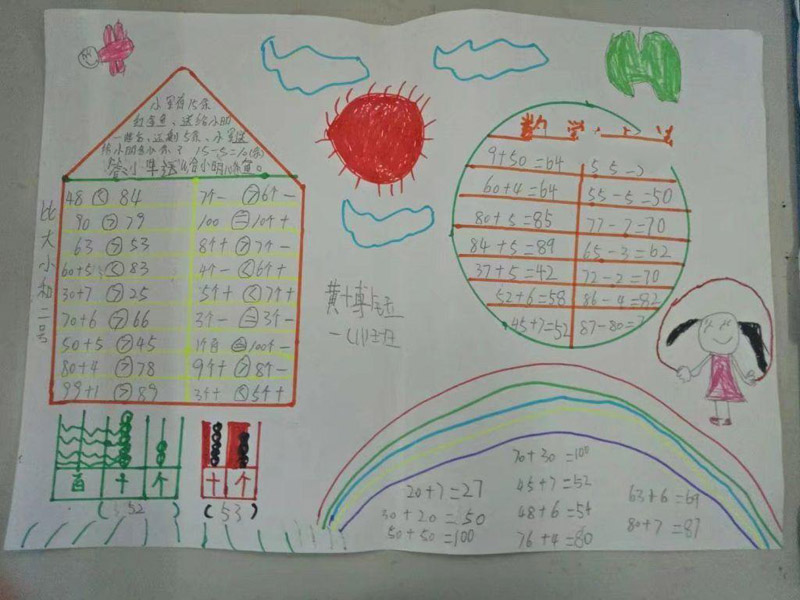 小军有15条
红金鱼,送给小明
一些后,还剩5条,小军送
给小明多少条?15-5=10(条)
答:小军送给小明10条鱼。
比大小和二号
48<84
90>79
63>53
60+5<83
30+7>25
70+6>66
50+5>45
80+4>78
99+1>89
7个一>6个一
100=10个十
8个十>7个一
4个一<6个十
5个十<7个十
3个一=3个一
1个百=100个一
9个十>8个一
3个十<5个十
百 十 个
52
十 个
(53)
一(1)班
数学下法
9+50=64
60+4=64
80+5=85
84+5=89
37+5=42
52+6=58
45+7=52
55-5=50
77-7=70
65-3=62
72-2=70
86-4=82
87-80=7
20+7=27
30+20=50
50+50=100
70+30=100
45+7=52
48+6=54
76+4=80
63+6=69
80+7=87